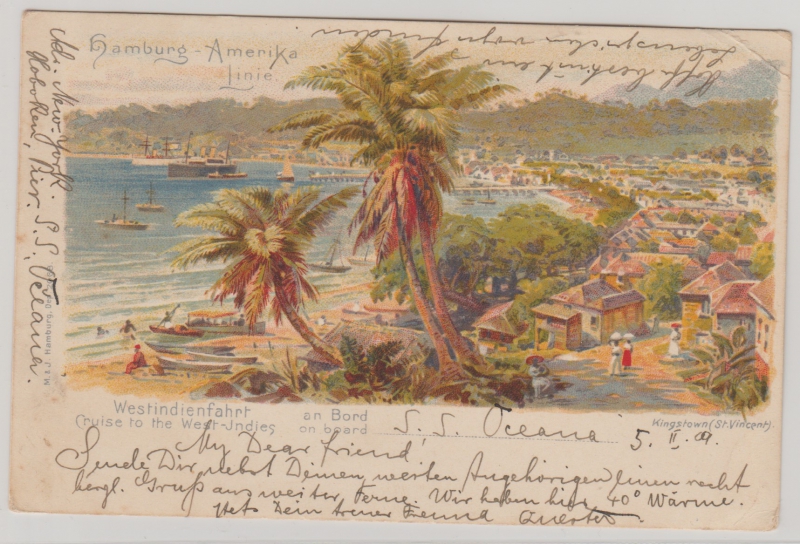 Hamburg-Amerika
Linie.
Hoffe Nachricht von
vorzufinden
Adr. New-York.
Hoboken, Pier. S.S. Oceana.
M & J Hamburg
Westindienfahrt an Bord
Cruise to the West-Indies on board S.S. Oceana 5. II. 09.
Kingstown (St. Vincent).
My Dear friend!
Sende Dir nebst Deinen werten Angehörigen einen recht
hergl. Gruß aus weiter Ferne. Wir haben hier 40° Wärme.
stets Dein treuer Freund